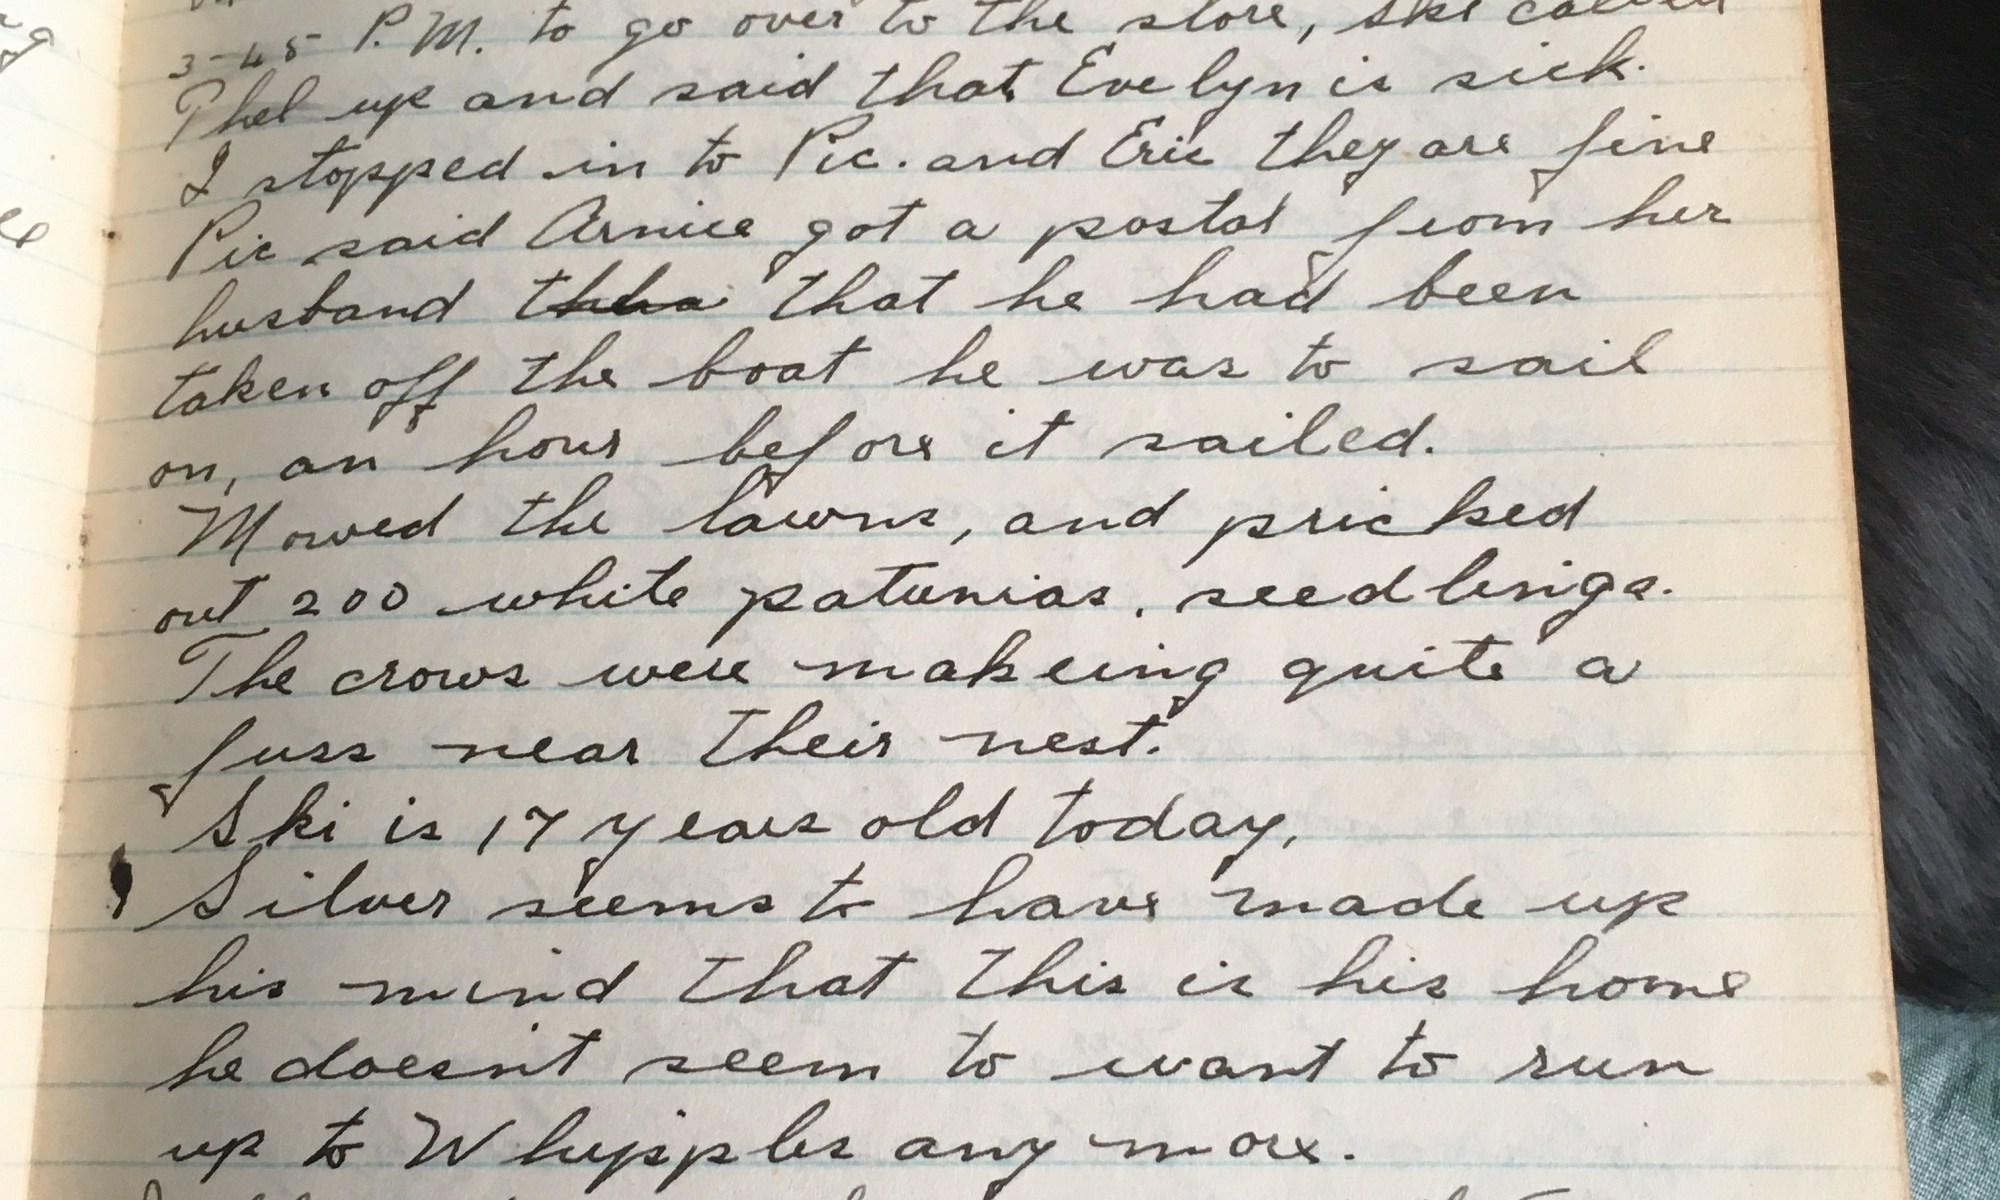 3-45 P.M. to go over to the store, she called
Phel up and said that Evelyn is sick.
I stopped in to Pic. and Eric they are fine
Pic said Arnice got a postal from her
husband that he had been
taken off the boat he was to sail
on, an hour before it sailed.
Mowed the lawns, and pricked
out 200 white patunias. seedlings.
The crows were makeing quite a
fuss near their nest.
Ski is 17 years old today,
Silver seems to have made up
his mind that this is his home
he doesn't seem to want to run
up to Whipples any more.